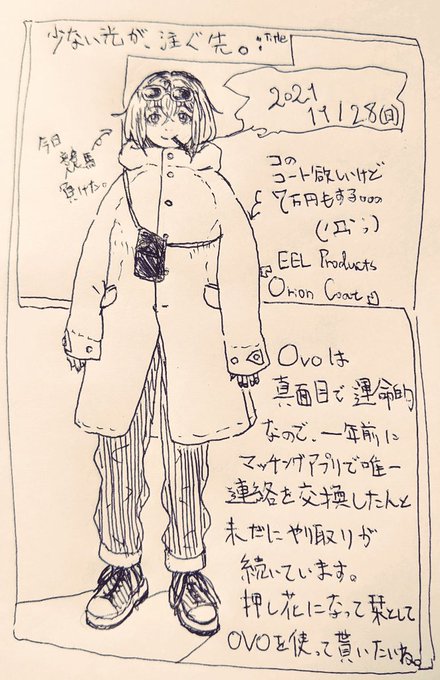 少ない光が、注ぐ先。:Title
2021
11/28(日)
今日
競馬
負けた。
コの
コート欲しいけど
7万円もする。。。
EEL Products
Orion Coat
Ovoは
真面目で運命的
なので、一年前に
マッチングアプリで唯一
連絡を交換したんと
未だにやり取りが
続いています。
押し花になって栞として
OVOを使って貰いたいね。